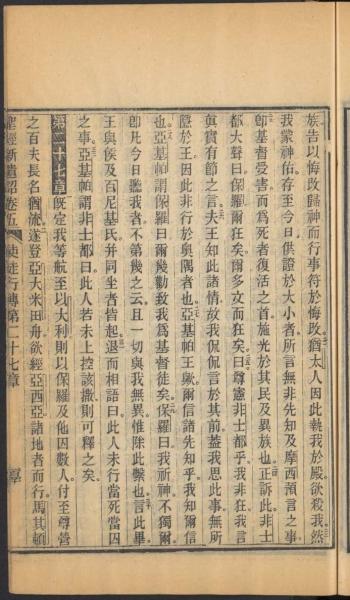 族告以悔改歸神而行事符於悔改猶太人因此執我於殿欲殺我然
我蒙神佑存至今日供證於大小者所言無非先知及摩西預言之事
卽基督受害而爲死者復活之首施光於其民及異族也正訴此非士
都大聲曰保羅爾狂矣爾多文而狂矣曰尊憲非士都乎我非狂我言
眞實有節之言夫王知此諸情故我侃侃言於其前蓋我思此事無所
隱於王因此非行於奥隅者也亞基帕王歟爾信諸先知乎我知爾信
也亞基帕謂保羅曰爾幾勸致我爲基督徒矣保羅曰我祈神不獨爾
卽凡今日聽我者不第幾之云且一切與我無異惟除此繫也言此畢
王與侯及百尼基氏并同坐者皆起退而相語曰此人未行當死當囚
之事亞基帕謂非士都曰此人若未上控該撒則可釋之矣
第二十七章旣定我等航至以大利則以保羅及他囚數人付至尊營
之百夫長名猶流遂登亞大米田舟欲經亞西亞諸地者而行馬其頓
聖經新遺詔卷五 使徒行傳第二十七章